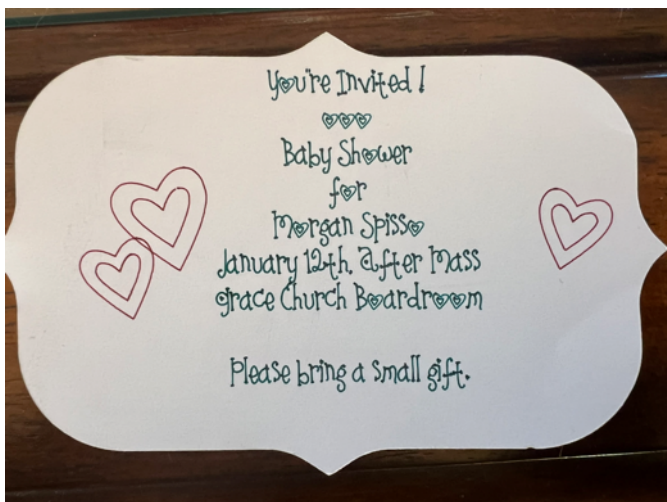 You're Invited!
Baby Shower
for
Morgan Spisso
January 12th, After Mass
Grace Church Boardroom
Please bring a small gift.